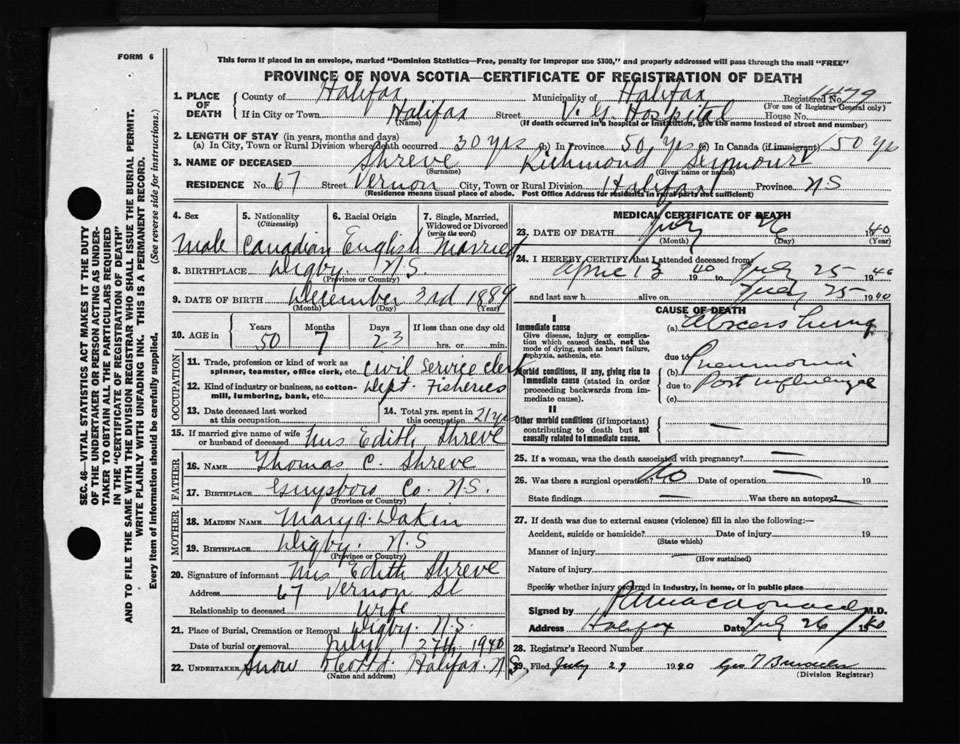 FORM 6
This form if placed in an envelope, marked "Dominion Statistics—Free, penalty for improper use $300," and properly addressed will pass through the mail "FREE"
PROVINCE OF NOVA SCOTIA—CERTIFICATE OF REGISTRATION OF DEATH
SEC. 46—VITAL STATISTICS ACT MAKES IT THE DUTY
OF THE UNDERTAKER OR PERSON ACTING AS UNDER-
TAKER TO OBTAIN ALL THE PARTICULARS REQUIRED
IN THE "CERTIFICATE OF REGISTRATION OF DEATH"
AND TO FILE THE SAME WITH THE DIVISION REGISTRAR WHO SHALL ISSUE THE BURIAL PERMIT.
WRITE PLAINLY WITH UNFADING INK. THIS IS A PERMANENT RECORD.
Every item of information should be carefully supplied. (See reverse side for instructions.)
1. PLACE OF DEATH County of Halifax Municipality of Halifax Registered No. 1479
(For use of Registrar General only)
If in City or Town Halifax Street V. G. Hospital House No.
(Name) (If death occurred in a hospital or institution, give the name instead of street and number)
2. LENGTH OF STAY (in years, months and days)
(a) In City, Town or Rural Division where death occurred 30 yrs (b) In Province 50 yrs (c) In Canada (if immigrant) 50 yrs
3. NAME OF DECEASED Shreve Richmond Seymour
(Surname) (Given name or names)
RESIDENCE No. 67 Street Vernon City, Town or Rural Division Halifax Province N S
(Residence means usual place of abode. Post Office Address for residents in rural parts not sufficient)
4. Sex 5. Nationality (Citizenship) 6. Racial Origin 7. Single, Married, Widowed or Divorced (write the word)
Male Canadian English Married
8. BIRTHPLACE Digby. N.S.
(Province or Country)
9. DATE OF BIRTH December 3rd 1889
(Month) (Day) (Year)
10. AGE in Years Months Days If less than one day old
50 7 23 hrs. or min.
OCCUPATION
11. Trade, profession or kind of work as
spinner, teamster, office clerk, etc. Civil Service Clerk
12. Kind of industry or business, as cotton-
mill, lumbering, bank, etc. Dept. Fisheries
13. Date deceased last worked
at this occupation
14. Total yrs. spent in
this occupation 21 yrs
15. If married give name of wife
or husband of deceased Mrs Edith Shreve
FATHER
16. NAME Thomas C. Shreve
17. BIRTHPLACE Guysboro Co. N.S.
(Province or Country)
MOTHER
18. MAIDEN NAME Mary A. Dakin
19. BIRTHPLACE Digby. N.S
(Province or Country)
20. Signature of informant Mrs Edith Shreve
Address 67 Vernon St
Relationship to deceased Wife
21. Place of Burial, Cremation or Removal Digby. N.S.
Date of burial or removal July 27th 1940
22. UNDERTAKER Snow Halifax. N S.
(Name and address)
MEDICAL CERTIFICATE OF DEATH
23. DATE OF DEATH July 26 1940
(Month) (Day) (Year)
24. I HEREBY CERTIFY that I attended deceased from:
April 13 1940 to July 25 1940
and last saw h alive on July 25 1940
CAUSE OF DEATH
I
Immediate cause
Give disease, injury or complica-
tion which caused death, not the
mode of dying, such as heart failure,
asphyxia, asthenia, etc.
(a) Abscess Lung
due to
Morbid conditions, if any, giving rise to
immediate cause (stated in order
proceeding backwards from im-
mediate cause).
(b) Pneumonia
due to Post influenzal
(c)
II
Other morbid conditions (if important)
contributing to death but not
causally related to immediate cause.
25. If a woman, was the death associated with pregnancy? —
26. Was there a surgical operation? No Date of operation — 19
State findings — Was there an autopsy? —
27. If death was due to external causes (violence) fill in also the following:—
Accident, suicide or homicide? Date of injury 19
(State which)
Manner of injury
(How sustained)
Nature of injury
Specify whether injury occurred in industry, in home, or in public place
Signed by M.D.
Address Halifax Date July 26 1940
28. Registrar's Record Number
29. Filed July 29 1940 Geo T
(Division Registrar)